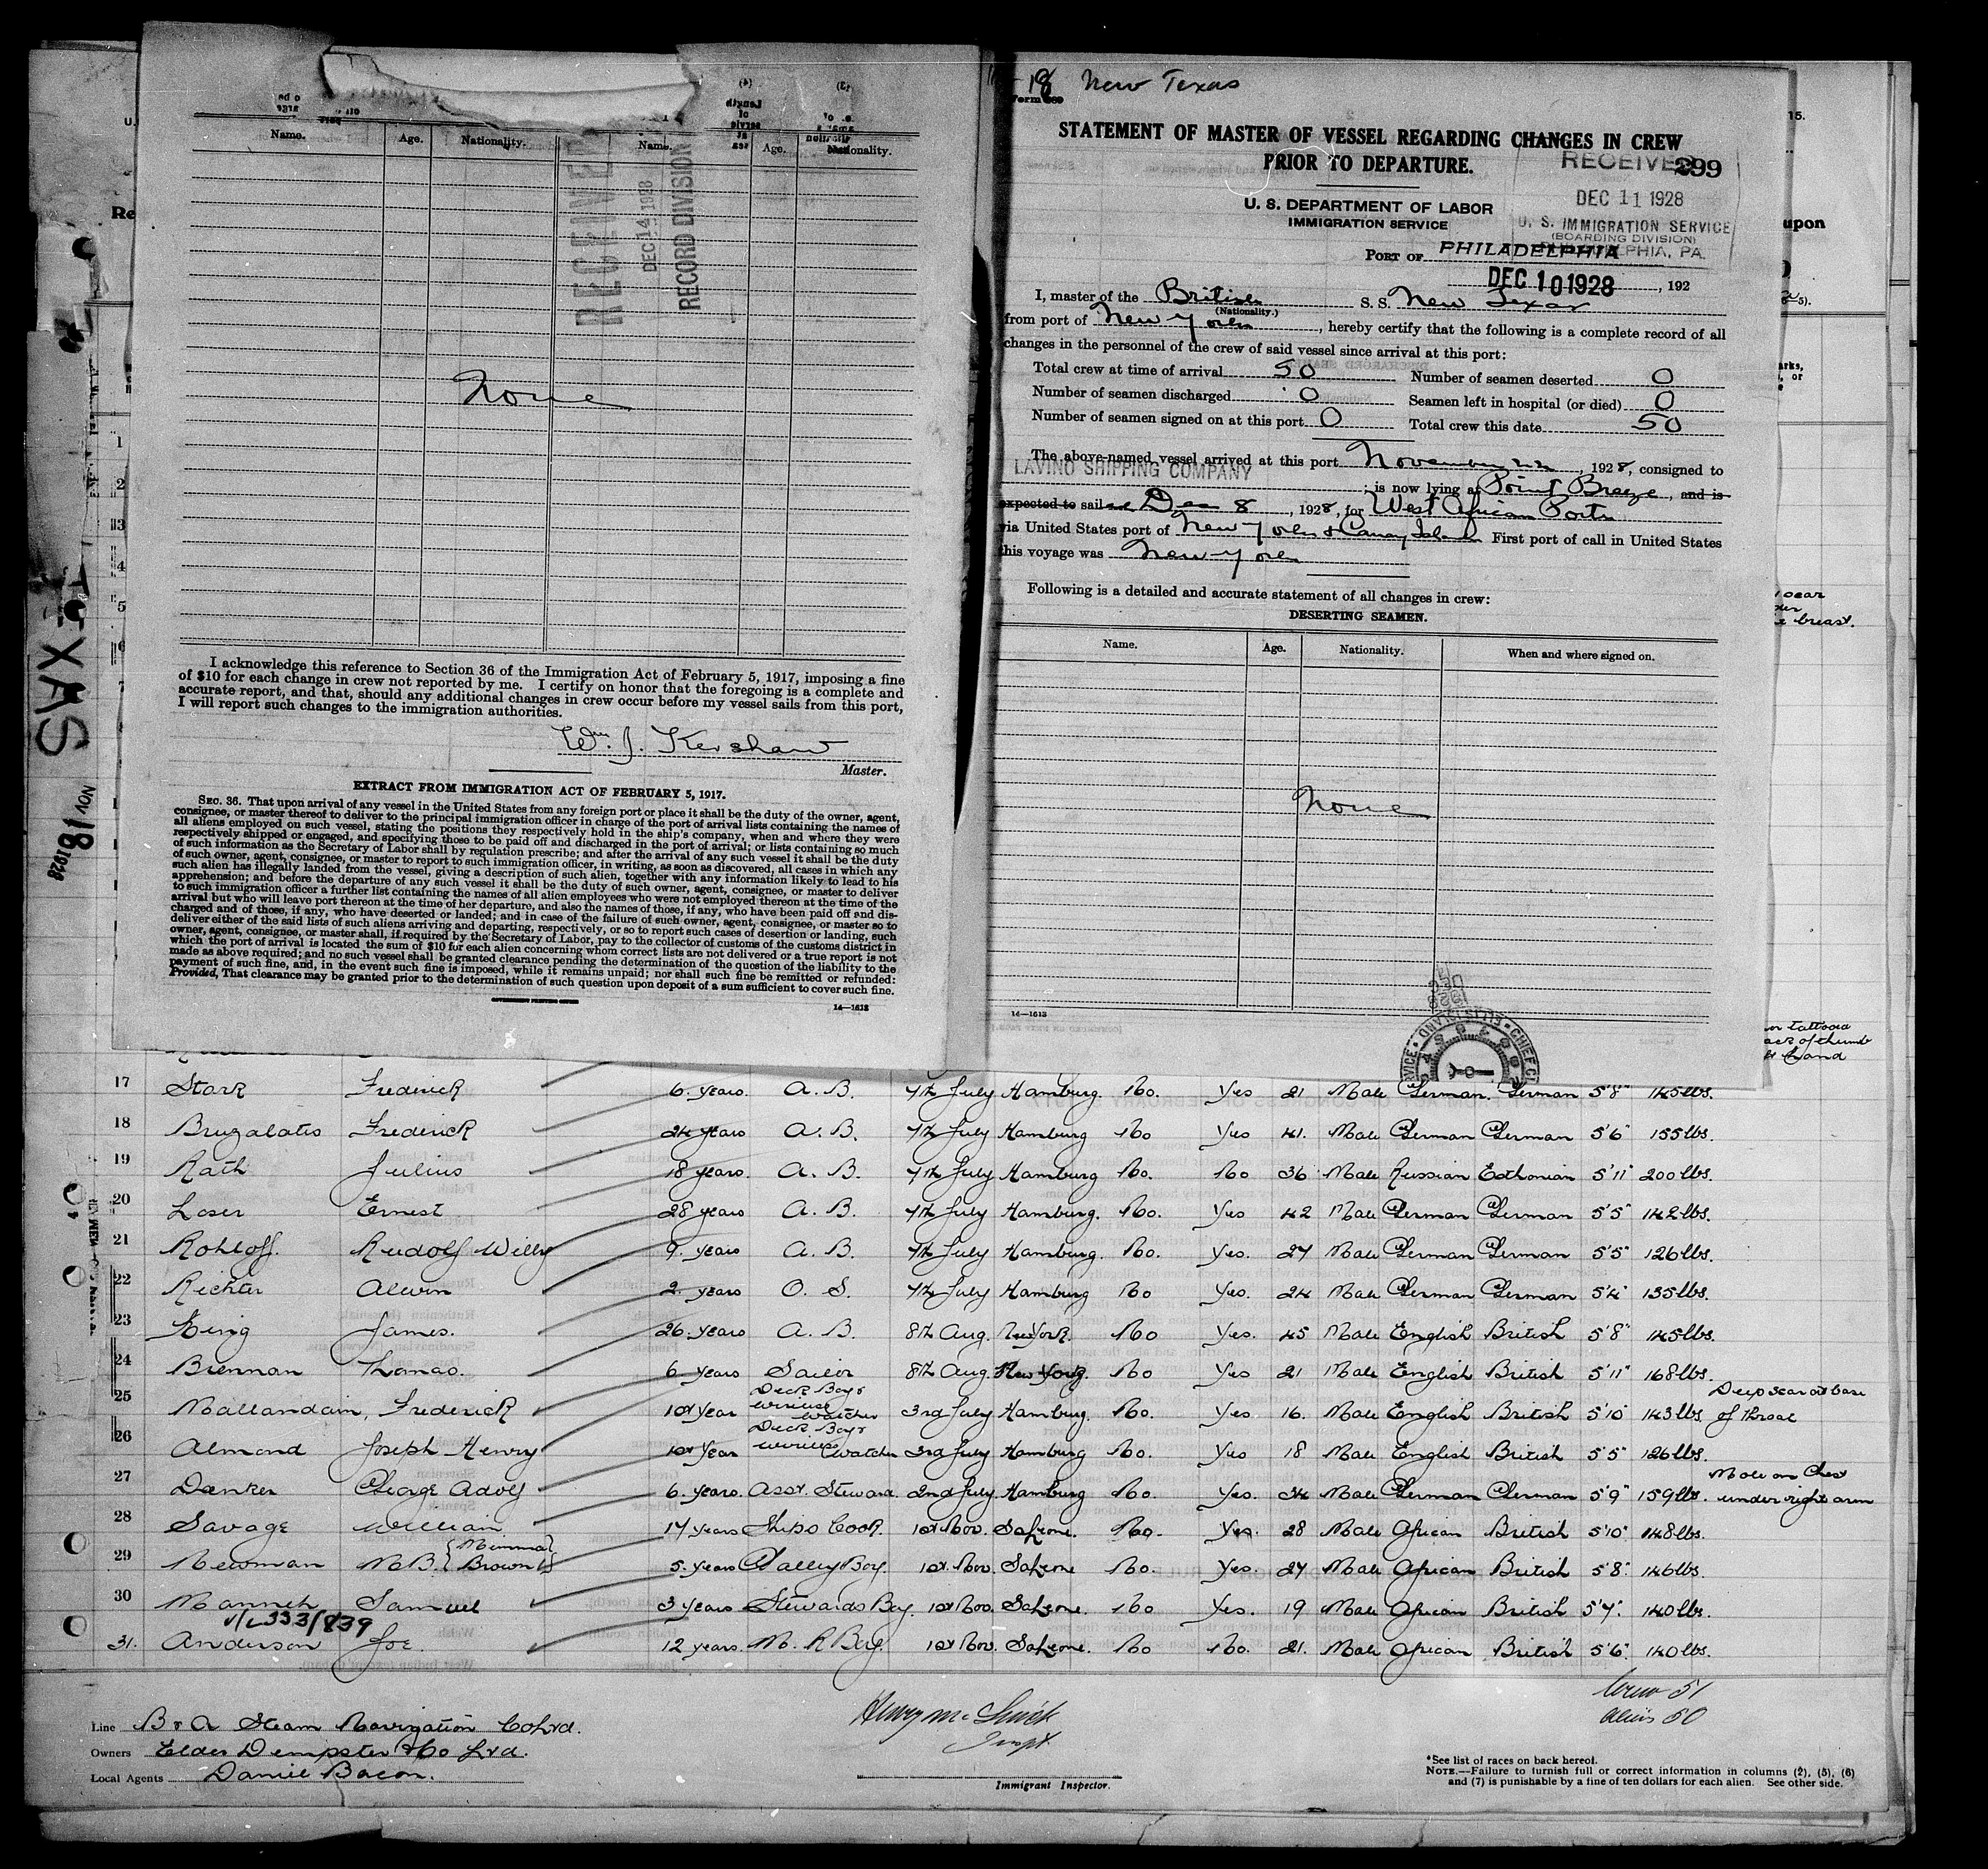 Name. Age. Nationality. Name. Age. Nationality.
RECEIVED
DEC 14 1928
RECORD DIVISION
None
I acknowledge this reference to Section 36 of the Immigration Act of February 5, 1917, imposing a fine
of $10 for each change in crew not reported by me. I certify on honor that the foregoing is a complete and
accurate report, and that, should any additional changes in crew occur before my vessel sails from this port,
I will report such changes to the immigration authorities.
Wm. J. Kershaw
Master.
EXTRACT FROM IMMIGRATION ACT OF FEBRUARY 5, 1917.
SEC. 36. That upon arrival of any vessel in the United States from any foreign port or place it shall be the duty of the owner, agent,
consignee, or master thereof to deliver to the principal immigration officer in charge of the port of arrival lists containing the names of
all aliens employed on such vessel, stating the positions they respectively hold in the ship's company, when and where they were
respectively shipped or engaged, and specifying those to be paid off and discharged in the port of arrival; or lists containing so much
of such information as the Secretary of Labor shall by regulation prescribe; and after the arrival of any such vessel it shall be the duty
of such owner, agent, consignee, or master to report to such immigration officer, in writing, as soon as discovered, all cases in which any
such alien has illegally landed from the vessel, giving a description of such alien, together with any information likely to lead to his
apprehension; and before the departure of any such vessel it shall be the duty of such owner, agent, consignee, or master to deliver
to such immigration officer a further list containing the names of all alien employees who were not employed thereon at the time of the
arrival but who will leave port thereon at the time of her departure, and also the names of those, if any, who have been paid off and dis-
charged and of those, if any, who have deserted or landed; and in case of the failure of such owner, agent, consignee, or master so to
deliver either of the said lists of such aliens arriving and departing, respectively, or so to report such cases of desertion or landing, such
owner, agent, consignee, or master shall, if required by the Secretary of Labor, pay to the collector of customs of the customs district in
which the port of arrival is located the sum of $10 for each alien concerning whom correct lists are not delivered or a true report is not
made as above required; and no such vessel shall be granted clearance pending the determination of the question of the liability to the
payment of such fine, and, in the event such fine is imposed, while it remains unpaid; nor shall such fine be remitted or refunded:
Provided, That clearance may be granted prior to the determination of such question upon deposit of a sum sufficient to cover such fine.
14—1613
18 New Texas
STATEMENT OF MASTER OF VESSEL REGARDING CHANGES IN CREW
PRIOR TO DEPARTURE.
RECEIVED
299
DEC 11 1928
U. S. IMMIGRATION SERVICE
(BOARDING DIVISION)
PHILADELPHIA, PA.
U. S. DEPARTMENT OF LABOR
IMMIGRATION SERVICE
PORT OF PHILADELPHIA
DEC 10 1928, 192
I, master of the British S. S. New Texas
(Nationality.)
from port of New York, hereby certify that the following is a complete record of all
changes in the personnel of the crew of said vessel since arrival at this port:
Total crew at time of arrival 50 Number of seamen deserted 0
Number of seamen discharged 0 Seamen left in hospital (or died) 0
Number of seamen signed on at this port 0 Total crew this date 50
The above-named vessel arrived at this port November 22, 1928, consigned to
LAVINO SHIPPING COMPANY; is now lying at Point Breeze, and is
expected to sailed Dec 8, 1928, for West African Ports
via United States port of New York & Canary Island First port of call in United States
this voyage was New York
Following is a detailed and accurate statement of all changes in crew:
DESERTING SEAMEN.
Name. Age. Nationality. When and where signed on.
None
14—1613
TEXAS
NOV 18 1928
upon
breast.
tattooed
back of thumb
hand
17 Stark Frederick 6. years. A. B. 7th July Hamburg. No. Yes 21 Male German. German 5'8" 145lbs.
18 Brugalatis Frederick 24 years A. B. 7th July Hamburg No Yes 41. Male German German 5'6" 155lbs.
19 Rath Julius 18 years. A. B. 7th July Hamburg No. No 36 Male Russian Esthonian 5'11" 200lbs.
20 Loser Ernest 28 years A. B. 7th July Hamburg. No. Yes 42 Male German German 5'5" 142lbs.
21 Rohloff. Rudolf Willy 9. years A. B. 7th July Hamburg. No. Yes. 27 Male German German 5'5" 126lbs.
22 Richter Alwin 2. years O. S. 7th July Hamburg No Yes. 24 Male German German 5'4" 135lbs.
23 King James. 26. years A. B. 8th Aug. New York. No Yes. 45 Male English British 5'8" 145lbs.
24 Brennan Thomas. 6 years Sailor 8th Aug. New York. No Yes 21 Male English British 5'11" 168lbs.
25 Mallandain, Frederick 1st year Deck Boy & wireless watcher 3rd July Hamburg. No. Yes 16. Male English British 5'10" 143lbs Deep scar at base of throat
26 Almond Joseph Henry 1st year Deck Boy & wireless watcher 3rd July Hamburg No. Yes 18 Male English British 5'5" 126lbs.
27 Danker George Adolf 6. years. Asst. Steward. 2nd July Hamburg No. Yes. 34 Male German German 5'9" 159lbs. Mole on Chest under right arm
28 Savage William 17 years Ships Cook. 1st Nov. Sa Leone. No. Yes. 28 Male African British 5'10" 148lbs.
29 Newman M B. {Memma Brown} 5. years Galley Boy. 1st Nov. Sa Leone No. Yes. 27 Male African British 5'8" 146lbs.
30 Manneh Samuel 3 years Stewards Boy. 1st Nov. Sa Leone. No Yes. 19 Male African British 5'7" 140lbs.
V/L 333/839
31. Anderson Joe. 12 years. M. R Boy. 1st Nov. Sa Leone No No. 21. Male African British 5'6" 140lbs.
Crew 51
aliens 50
Line B & A Steam Navigation Co Ltd.
Owners Elder Dempster & Co Ltd.
Local Agents Daniel Bacon.
Inspt.
Immigrant Inspector.
*See list of races on back hereof.
NOTE.—Failure to furnish full or correct information in columns (2), (5), (6)
and (7) is punishable by a fine of ten dollars for each alien. See other side.